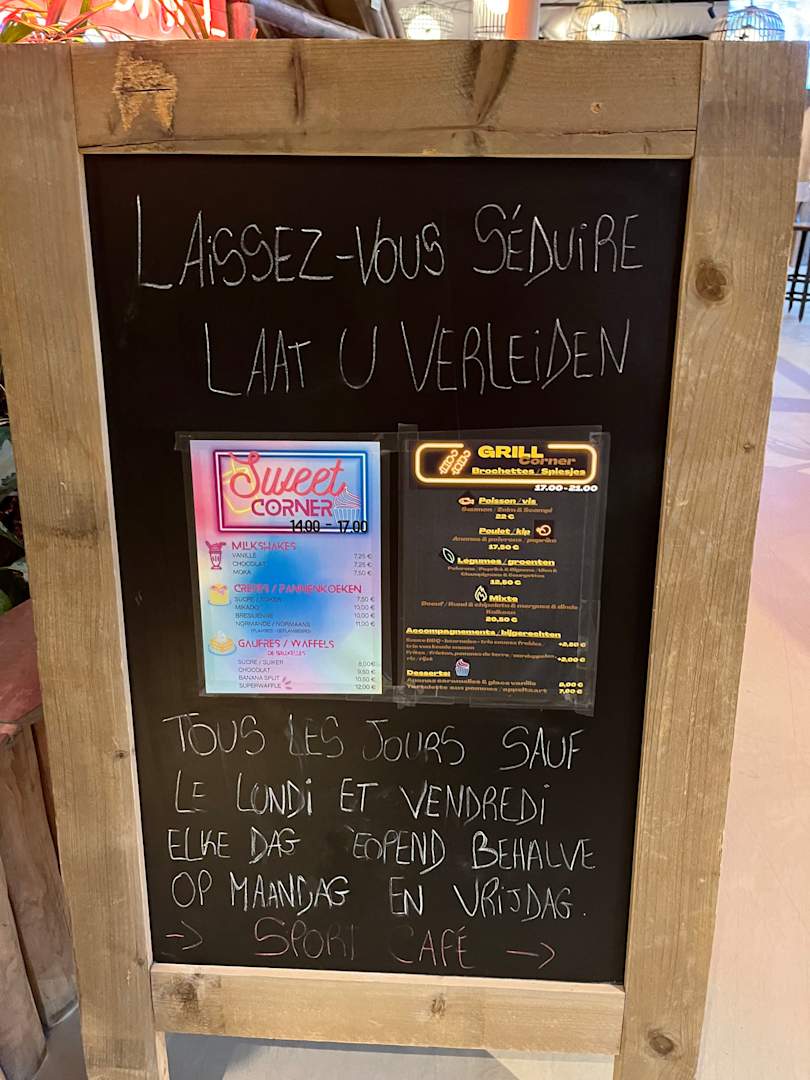 LAISSEZ-VOUS SÉDUIRE
LAAT U VERLEIDEN
Sweet
CORNER
14.00 - 17.00
MILKSHAKES
VANILLE 7,25 €
CHOCOLAT 7,25 €
MOKA 7,50 €
CREPES / PANNENKOEKEN
SUCRE / SUIKER 7,50 €
MIKADO 10,00 €
BRESILIENNE 10,00 €
NORMANDE / NORMAANS 11,00 €
(FLAMBÉE - GEFLAMBEERD)
GAUFRES / WAFFELS
DE BRUXELLES
SUCRE / SUIKER 8,00€
CHOCOLAT 9,50 €
BANANA SPLIT 10,50 €
SUPERWAFFLE 12,00 €
GRILL
Corner
Brochettes / Spiesjes
17.00 - 21.00
Poisson / vis
Saumon / Zalm & Scampi
22 €
Poulet / kip
Ananas & poivrons / paprika
17,50 €
Légumes / groenten
Poivrons / Paprika & Oignons / Uien &
Champignons & Courgettes
12,50 €
Mixte
Boeuf / Rund & chipolata & merguez & dinde
Kalkoen
20,50 €
Accompagnements / bijgerechten
Sauce BBQ - bearnaise - trio sauces froides / +2,50 €
trio van koude sauzen
Frites / frieten, pommes de terre / aardappelen - +3,00 €
riz / rijst
Desserts:
Ananas caramelisé & glace vanille 9,00 €
Tartelette aux pommes / appeltaart 7,00 €
TOUS LES JOURS SAUF
LE LUNDI ET VENDREDI
ELKE DAG EOPEND BEHALVE
OP MAANDAG EN VRIJDAG.
-> SPORT CAFÉ ->